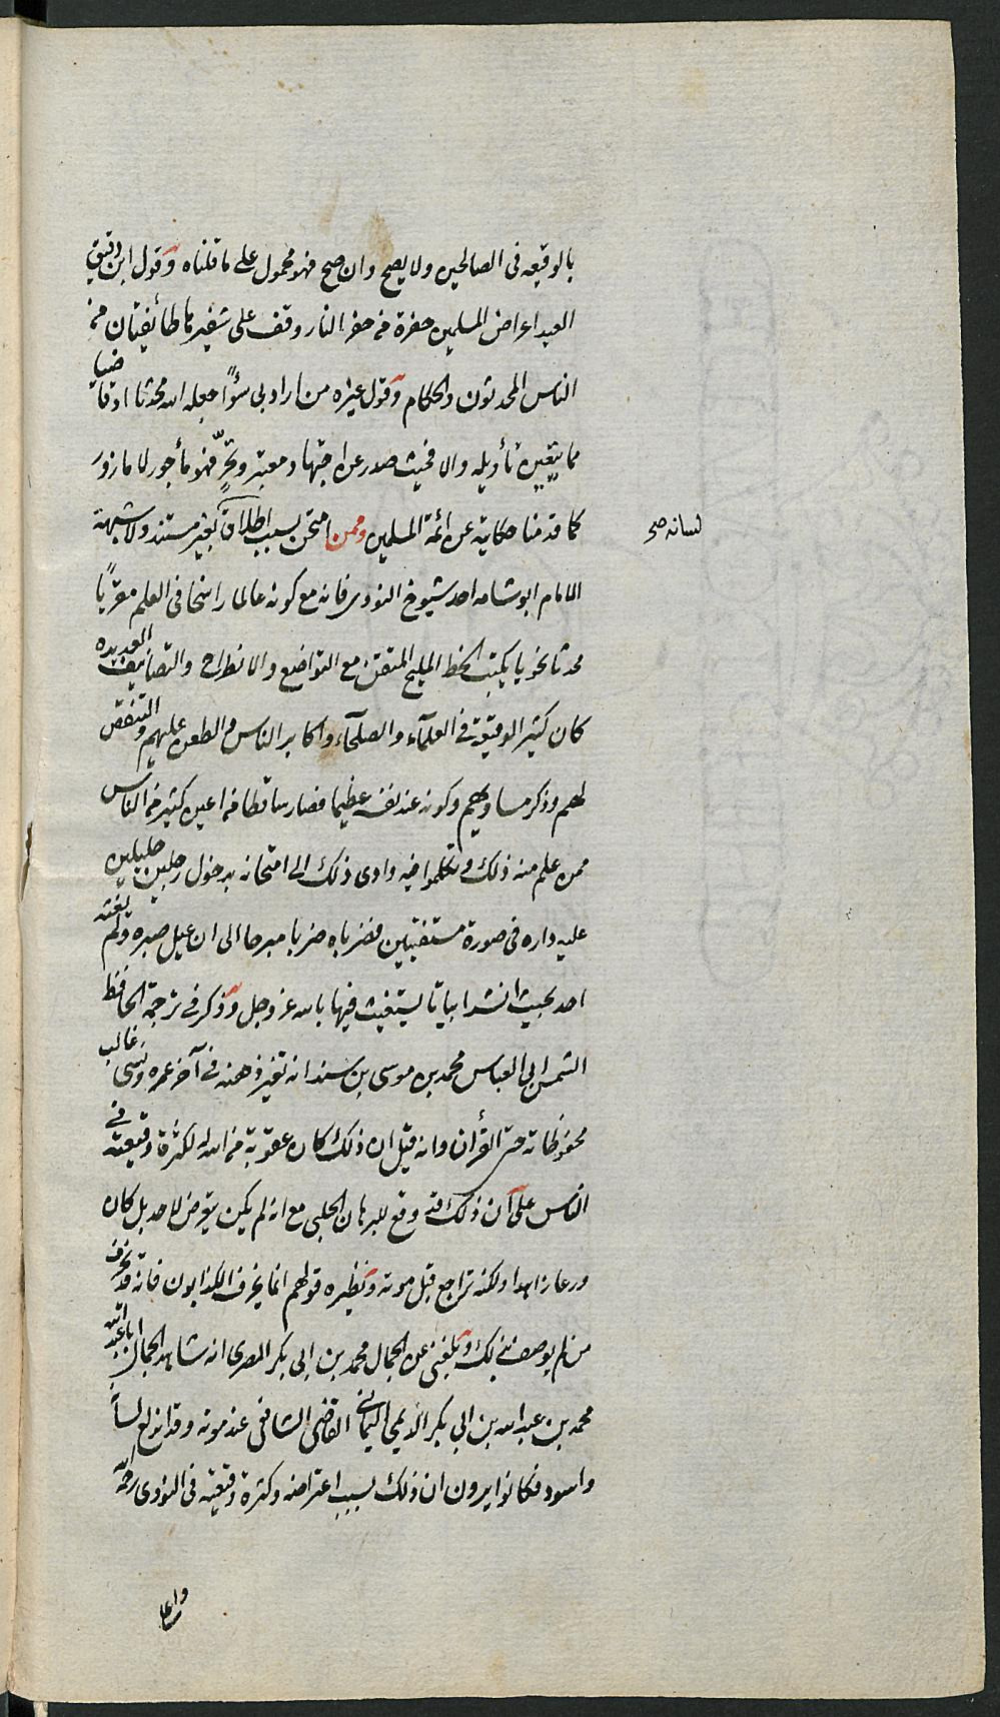 بالوقيعه فى الصالحين ولا يصح وان صح فهو محمول على ما قلناه وقول ابن دقيق
العيد اعراض المسلمين حفرة من حفر النار وقف على شفيرها طائفتان من
الناس المحدثون والحكام وقول غيره من اراد بى سوًا جعله الله محدثا او قاضيا
مما يتعين تأويله والا فحيث صدر عن اجتهاد معتبر وتحرٍّ فهو مأجور لا مأزور
كما قدمنا حكايته عن ائمة المسلمين وممن امتحن بسبب اطلاق بغير مستند ولا شبهة
لسانه صح
الامام ابو شامه احد شيوخ النووى فانه مع كونه عالما راسخا فى العلم مقريًا
محدثا نحويا يكتب الخط المليح المتقن مع التواضع والانطراح والتصانيف العديده
كان كثير الوقيعة فى العلمآء والصلحآء واكابر الناس والطعن عليهم والتنقص
لهم وذكر مساويهم وكونه عند نفسه عظيما فصار ساقطا من اعين كثير من الناس
ممن علم منه ذلك وتكلموا فيه وادى ذلك الى امتحانه بدخول رجلين جليلين
عليه داره فى صورة مستفتيين فضرباه ضربا مبرحا الى ان عيل صبره ولم يغثه
احد بحيث انشد ابياتا يستغيث فيها بالله عز وجل وذكر فى ترجمة الحافظ
الشمس ابى العباس محمد بن موسى بن سند انه تغير ذهنه فى آخر عمره ونسى غالب
محفوظاته حتى القرأن وانه قيل ان ذلك كان عقوبة من الله له لكثرة وقيعته فى
الناس على ان ذلك قد وقع للبرهان الحلبى مع انه لم يكن يتعرض لاحد بل كان
ورعا زاهدا ولكنه تراجع قبل موته ونظيره قولهم انما يخرف الكذابون فانه قد خرف
من لم يوصف بذلك وبلغنى عن الجمال محمد بن ابى بكر المصرى انه شاهد الجمال ابا عبد الله
محمد بن عبد الله بن ابى بكر الريمى اليمانى القاضى الشافعى عند موته وقد اندلع لسانه
واسود فكانوا يرون ان ذلك بسبب اعتراضه وكثرة وقيعته فى النووى رحمه